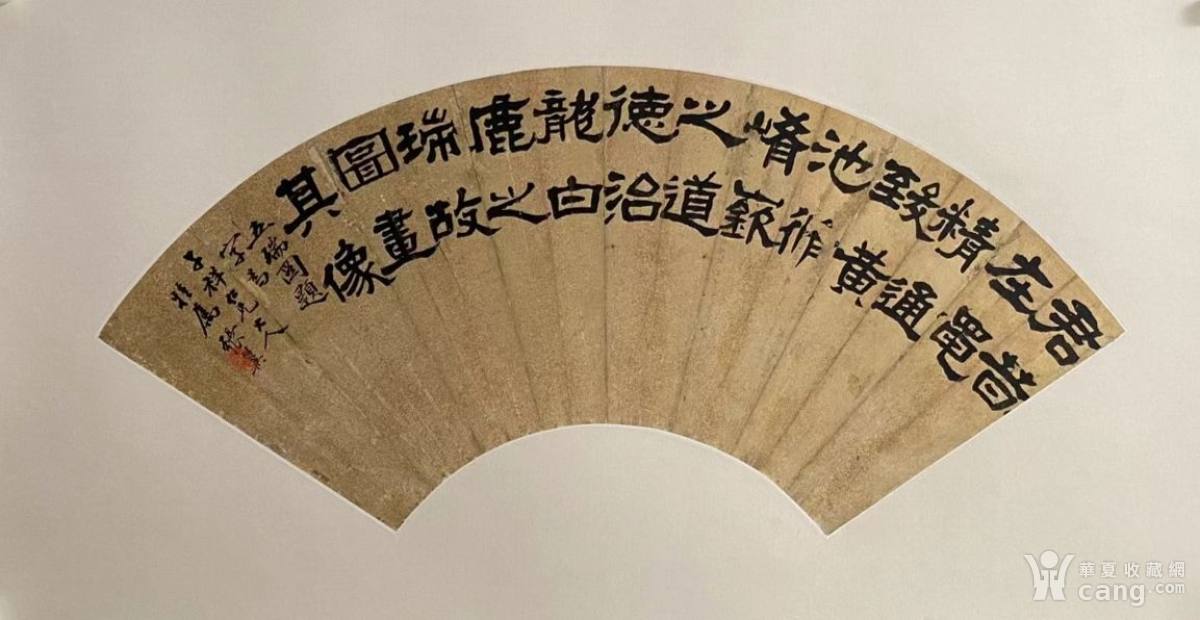 君昔
在黽
精通
致黃
池脩
崤嶔
之道
德治
龍白
鹿之
瑞故
圖畫
其像
五瑞圖題
字為
子祥仁兄大人
雅屬 張
華夏收藏網
cang.com